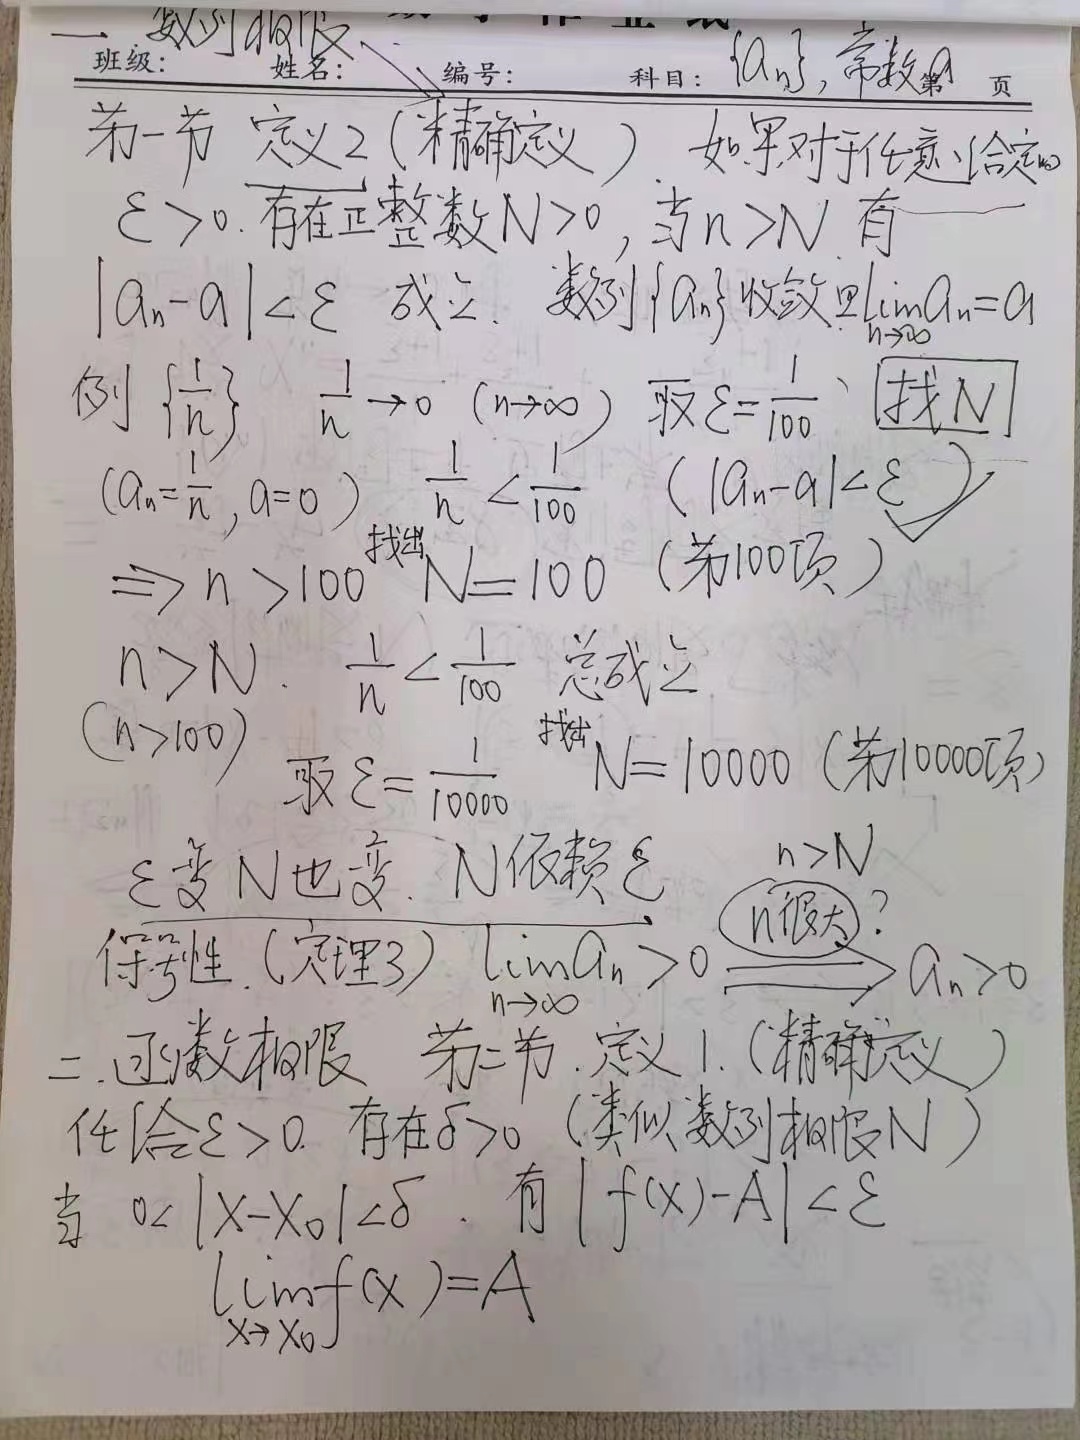 数学作业纸
一、数列极限
班级： 姓名： 编号： 科目： {aₙ}, 常数a 第 页
第一节 定义2 (精确定义) 如果对于任意给定的
ε>0. 存在正整数N>0, 当n>N 有
|aₙ-a|<ε 成立. 数列{aₙ}收敛且lim aₙ=a
n→∞
例 {1/n} 1/n→0 (n→∞) 取ε=1/100、 找N
(aₙ=1/n, a=0) 1/n<1/100 (|aₙ-a|<ε)
⇒ n>100 找出 N=100 (第100项)
n>N. 1/n<1/100 总成立
(n>100)
取ε=1/10000 找出 N=10000 (第10000项)
ε变N也变. N依赖ε
n>N
n很大?
保号性.(定理3) lim aₙ>0 ⇒ aₙ>0
n→∞
二.函数极限 第二节.定义1.(精确定义)
任给ε>0. 存在δ>0 (类似数列极限N)
当 0<|x-x₀|<δ. 有|f(x)-A|<ε
lim f(x)=A
x→x₀